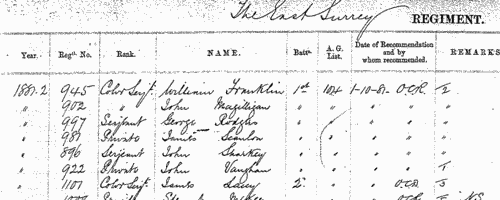 The East Surrey REGIMENT.
Year. Regtl. No. Rank. NAME. Batn. A. G. List. Date of Recommendation and by whom recommended. REMARKS
1881-2 945 Color Serjt. William Franklin 1st 104 1-10-81 O.C.R. 2
" 902 " John Magilligan " " " " "
" 997 Serjeant George Rodgers " " " " "
" 987 Private James Scanlon " " " " "
" 896 Serjeant John Sharkey " " " " "
" 922 Private John Vaughan " " " " 1
" 1107 Color Serjt. James Lacey 2 " " O.C.R. 3